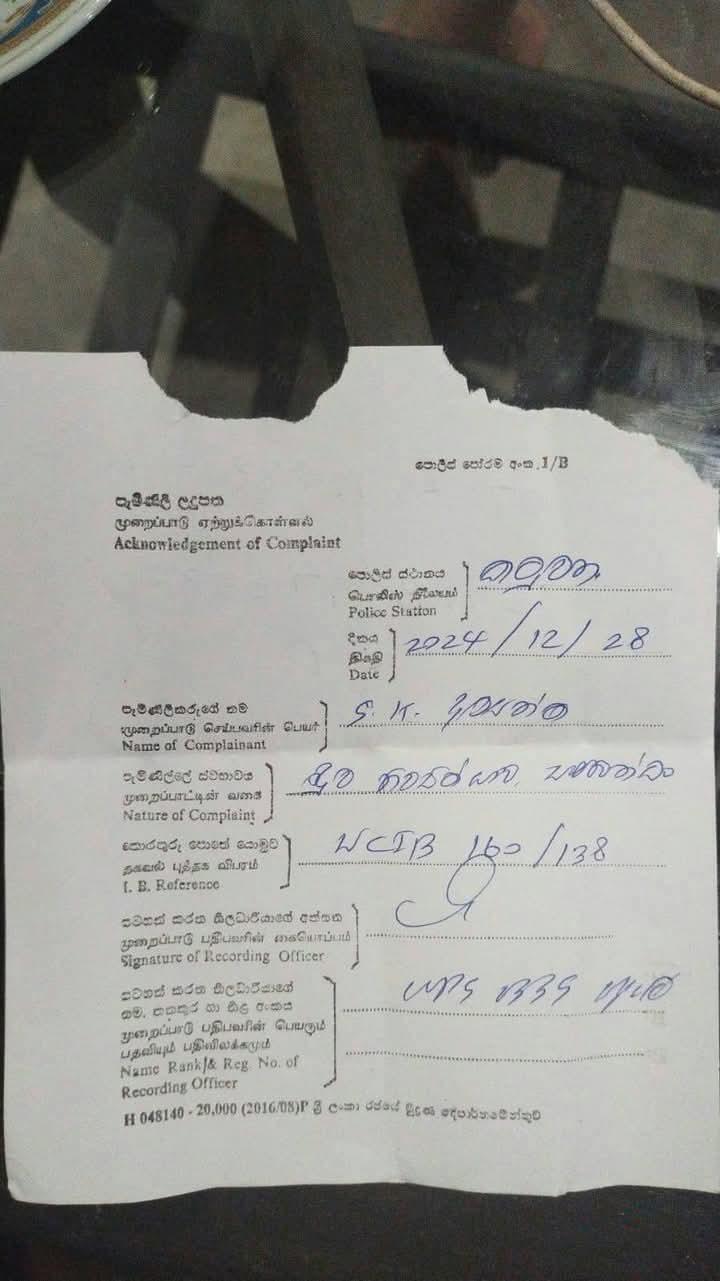 පොලිස් පෝරම අංක 1/B
පැමිණිලි ලදුපත
முறைப்பாடு ஏற்றுக்கொள்வல்
Acknowledgement of Complaint
පොලිස් ස්ථානය
பொலிஸ் நிலையம்
Police Station
දිනය
திகதி
Date
2024/12/28
පැමිණිලිකරුගේ නම
முறைப்பாடு செய்பவரின் பெயர்
Name of Complainant
S. K.
පැමිණිල්ලේ ස්වභාවය
முறைப்பாட்டின் வகை
Nature of Complaint
තොරතුරු පොතේ යොමුව
தகவல் புத்தக விபரம்
I. B. Reference
WCIB 160/138
සටහන් කරන නිලධාරියාගේ අත්සන
முறைப்பாடு பதிபவரின் கையொப்பம்
Signature of Recording Officer
සටහන් කරන නිලධාරියාගේ
නම, තනතුර හා නිල අංකය
முறைப்பாடு பதிபவரின் பெயரும்
பதவியும் பதிவிலக்கமும்
Name Rank/& Reg. No. of
Recording Officer
H 048140 - 20,000 (2016/08)P ශ්‍රී ලංකා රජයේ මුද්‍රණ දෙපාර්තමේන්තුව